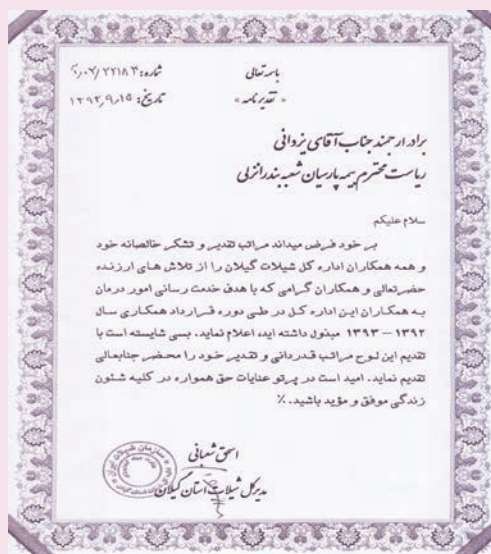 باسمه تعالی
« تقدیرنامه »
تاریخ: ۱۳۹۳٫۹٫۱۵
برادر ارجمند جناب آقای یزدانی
ریاست محترم بیمه پارسیان شعبه بندرانزلی
سلام علیکم
بر خود فرض میداند مراتب تقدیر و تشکر خالصانه خود
و همه همکاران اداره کل شیلات گیلان را از تلاش های ارزنده
حضرتعالی و همکاران گرامی که با هدف خدمت رسانی امور درمان
به همکاران این اداره کل در طی دوره قرارداد همکاری سال
۱۳۹۲ – ۱۳۹۳ مبذول داشته اید، اعلام نماید. بسی شایسته است با
تقدیم این لوح مراتب قدردانی و تقدیر خود را محضر جنابعالی
تقدیم نماید. امید است در پرتو عنایات حق همواره در کلیه شئون
زندگی موفق و مؤید باشید. ٪
اسحق شعبانی
مدیرکل شیلات استان گیلان